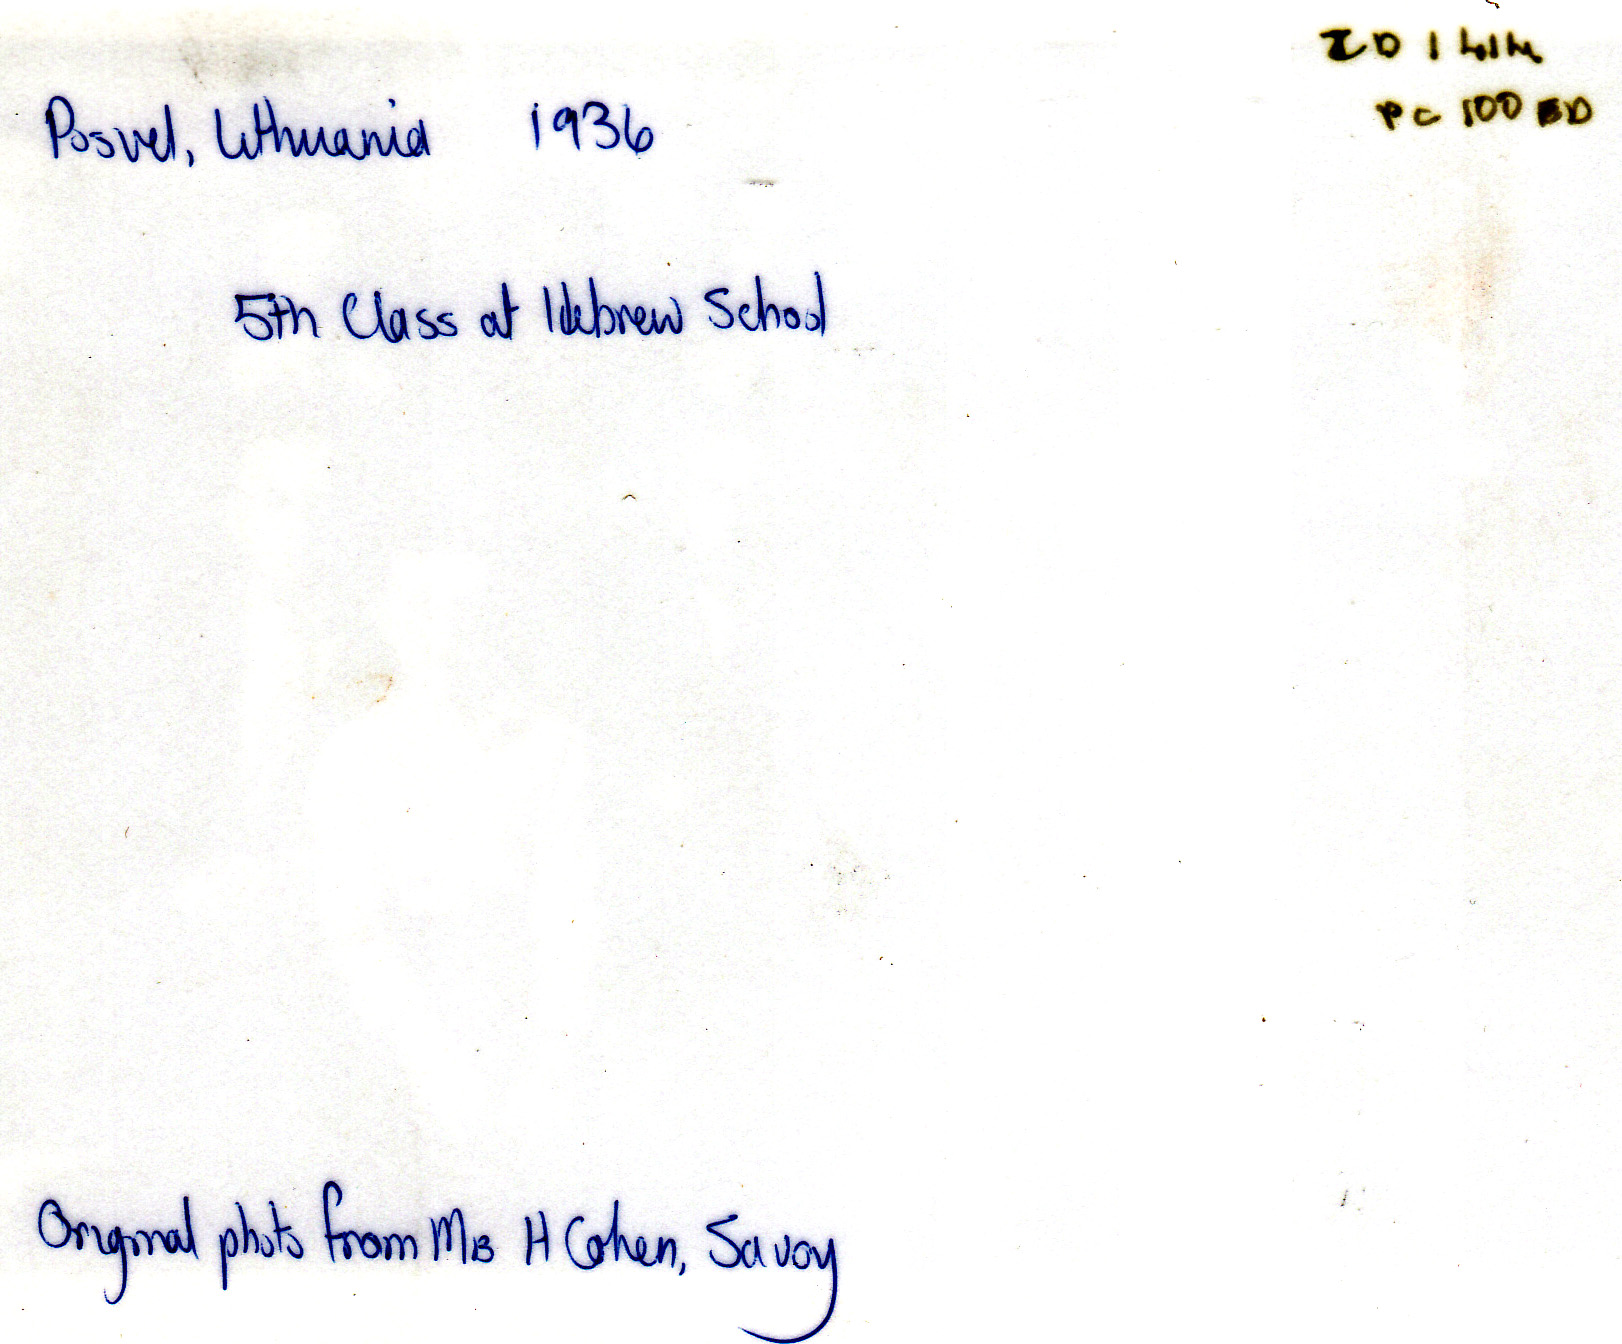 ID 1414
PC 100 BD
Posvel, Lithuania 1936
5th Class at Hebrew School
Original photo from Mrs H Cohen, Savoy